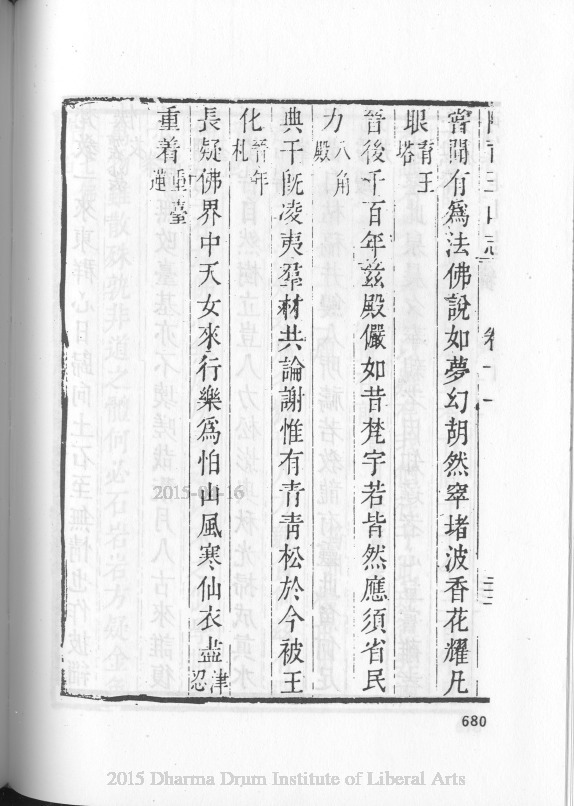 阿育王山志 卷十一
嘗聞有爲法佛說如夢幻胡然窣堵波香花耀凡
眼 育王塔
晉後千百年茲殿儼如昔梵宇若皆然應須省民
力 八角殿
典午既凌夷羣材共論謝惟有青青松於今被王
化 晉年松
長疑佛界中天女來行樂爲怕山風寒仙衣盡津忍
重着 重臺蓮
680
2015 Dharma Drum Institute of Liberal Arts